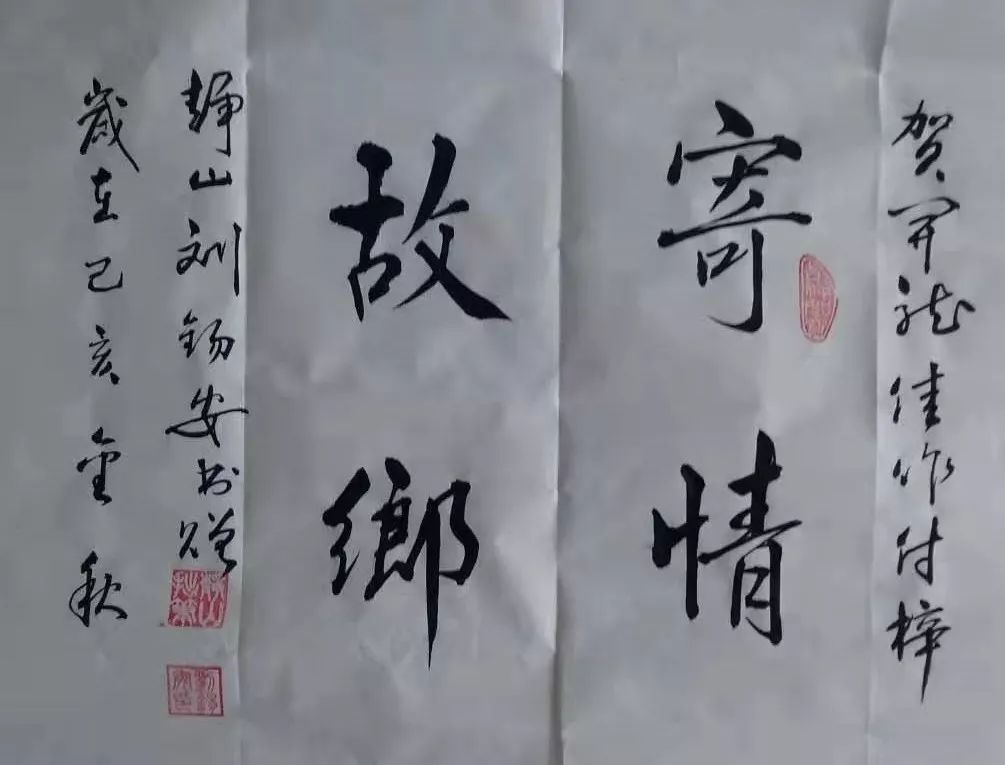 贺开龙佳作付梓
寄情
故鄉
静山刘锡安书赠
歲在己亥金秋